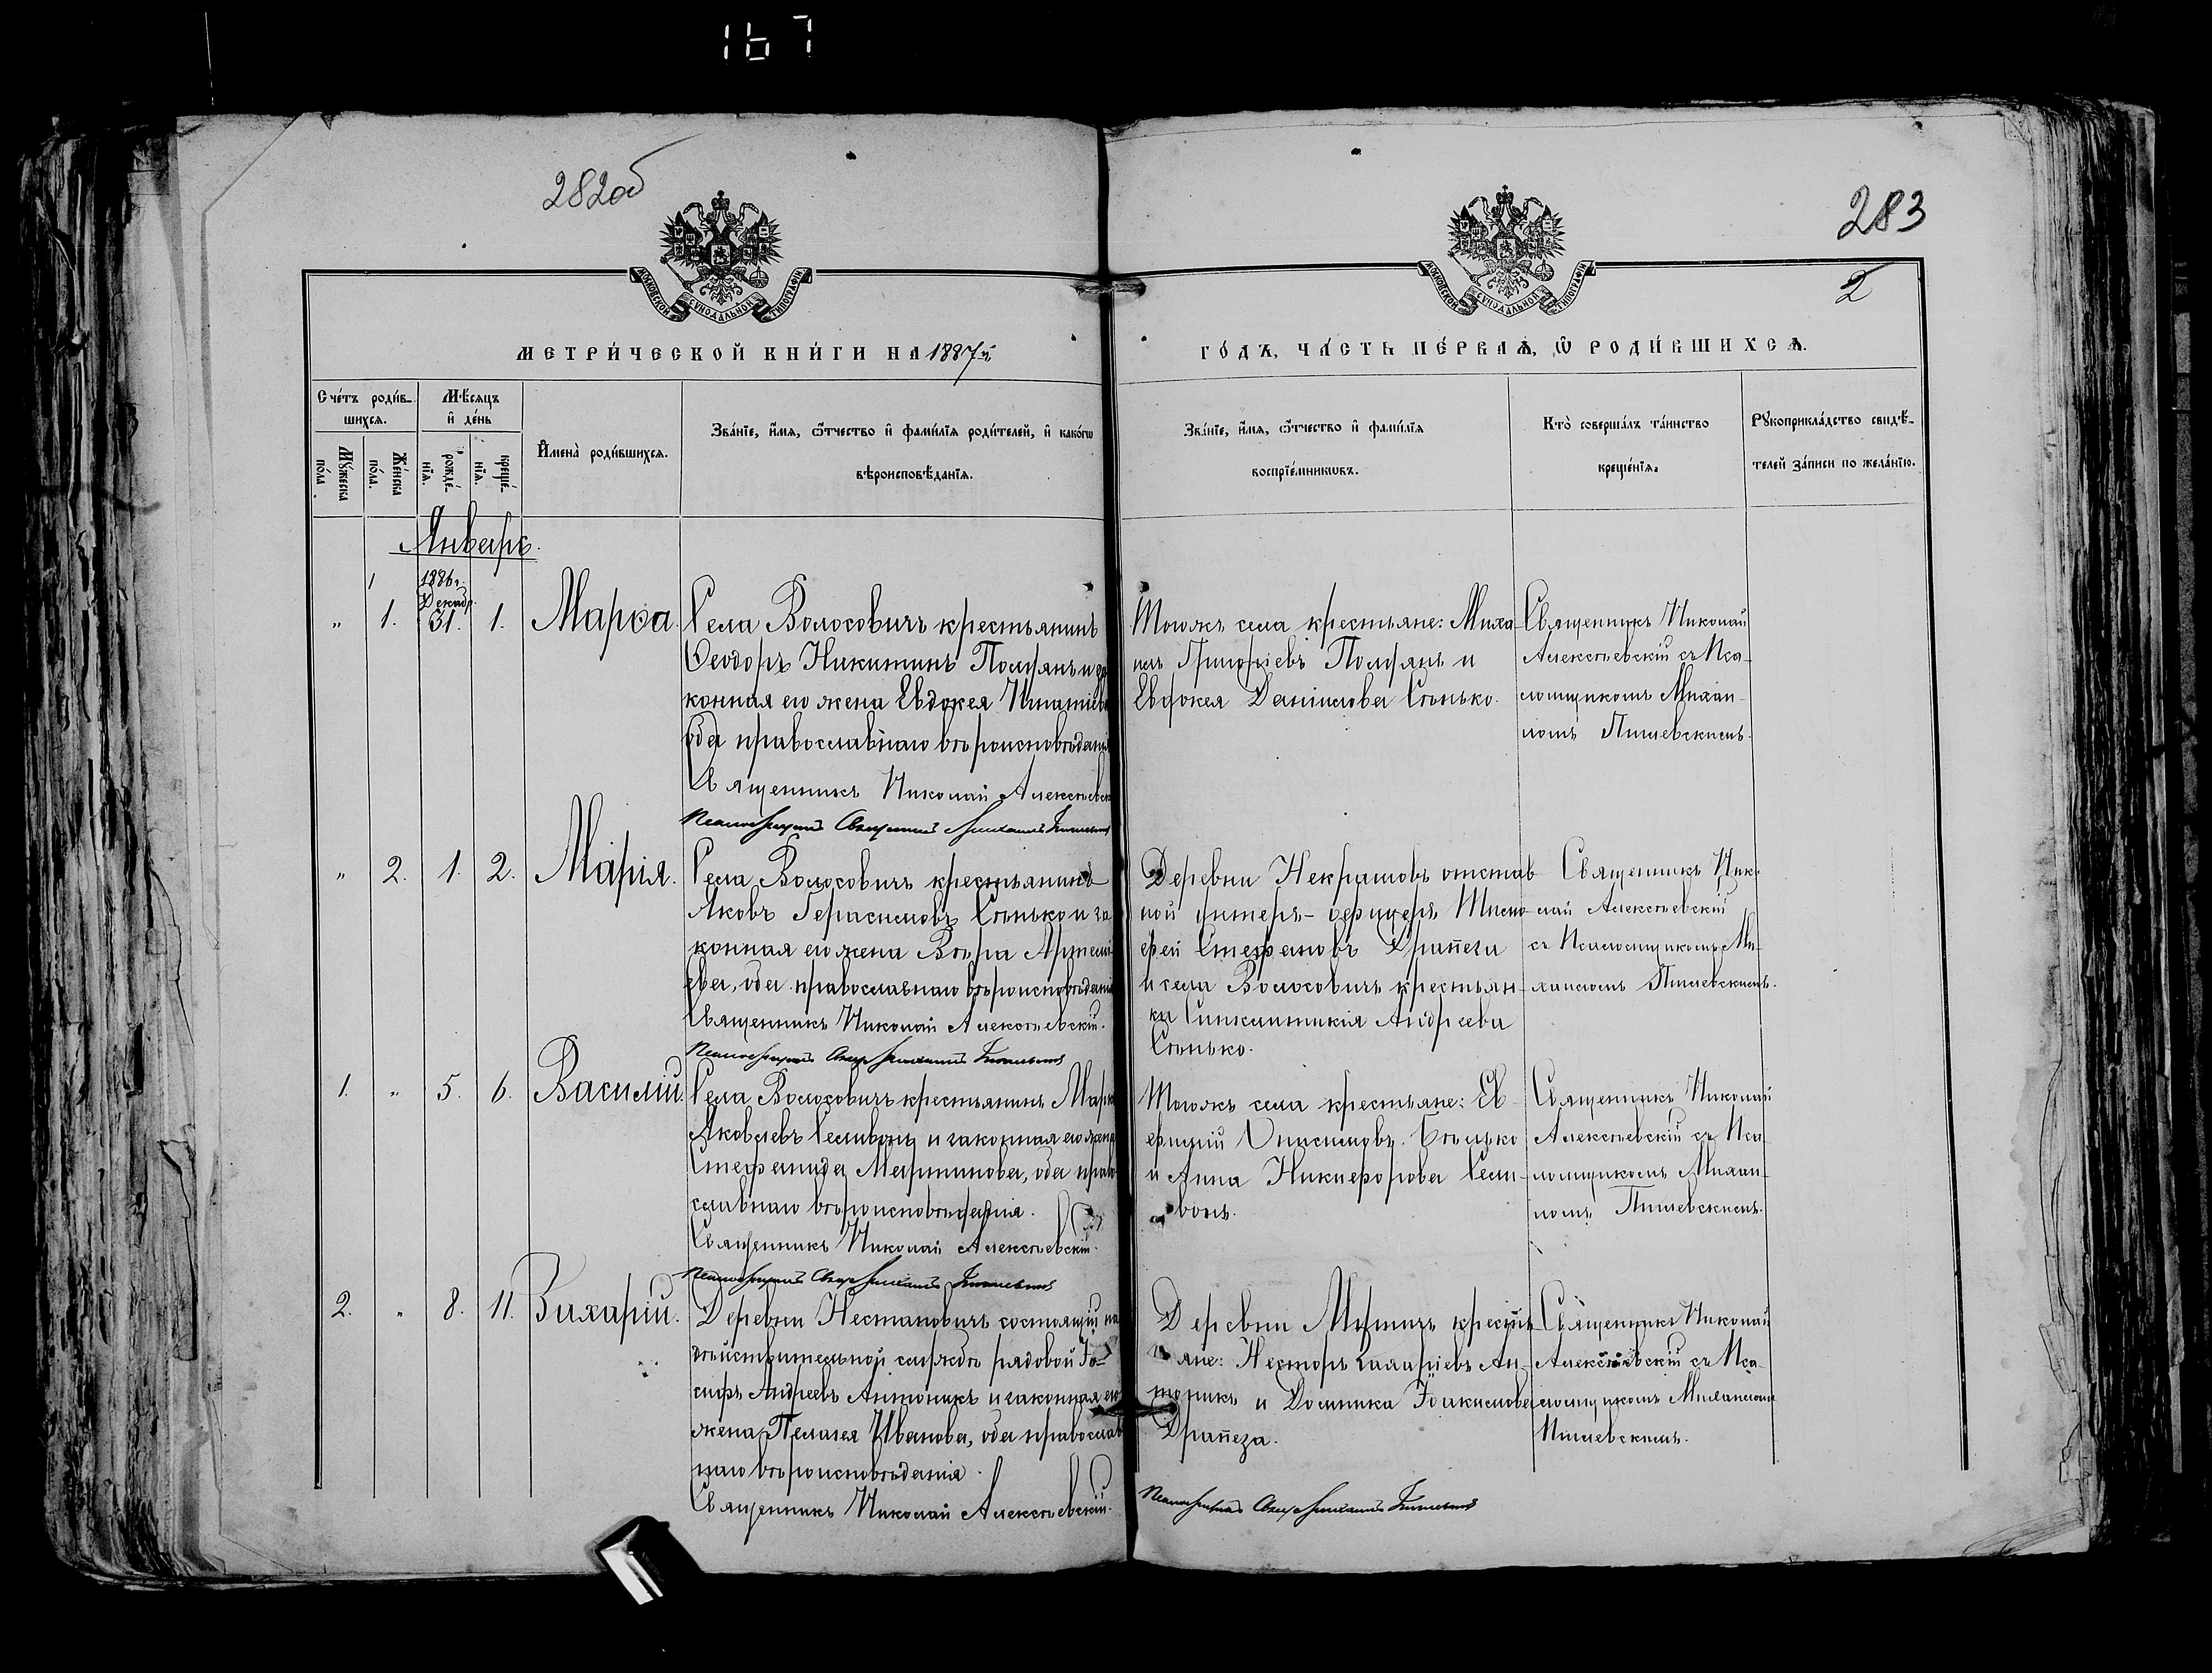 167
282об
283
2
МОСКОВСКОЙ СѴНОДАЛЬНОЙ ТИПОГРАФІИ
МОСКОВСКОЙ СѴНОДАЛЬНОЙ ТИПОГРАФІИ
МЕТРИ́ЧЕСКОЙ КНИ́ГИ НА 1887й
ГО́ДЪ, ЧА́СТЬ ПЕ́РВАѦ, Ѡ РОДИ́ВШИХСѦ.
Сче́тъ роди́в-
шихся.
Мѣ́сяцъ
и де́нь
Мꙋ́жеска по́ла.
Же́нска по́ла.
рожде́-нїя.
креще́-нїя.
И҆мена̀ роди́вшихся.
Зва́нїе, и҆́мя, ѻ҆́тчество и҆ фами́лїя роди́телей, и҆ како́гѡ
вѣроисповѣ́данїя.
Зва́нїе, и҆́мя, ѻ҆́тчество и҆ фами́лїя
воспрїе́мникѡвъ.
Кто̀ соверша́лъ та́инство
креще́нїя.
Рꙋкоприкла́дство свидѣ́-
телей за́писи по жела́нїю.
Январь.
1
1886г.
Декабр.
" 1. 31. 1. Марѳа.
Села Волосовичъ крестьянинъ
Ѳеодоръ Никитинъ и за
конная его жена Евдокея Игнатіева
оба православнаго вѣроисповѣданія
Священникъ Николай Алексѣевскій
Того жъ села крестьяне: Миха
илъ Григоріевъ и
Евдокея Даніилова Сѣнько.
Священникъ Николай
Алексѣевскій съ Пса-
ломщикомъ Михаи-
ломъ
" 2. 1. 2. Марія.
Села Волосовичъ крестьянинъ
Яковъ Герасимовъ Сѣнько и за
конная его жена Вѣра Артемі
ева, оба православнаго вѣроисповѣданія
Священникъ Николай Алексѣевскій.
Деревни Некрашовъ отстав
ной унтеръ-офицеръ Тимо-
фей Стефановъ Драпеза
и села Волосовичъ крестьян-
ка Синклитикія Андреева
Сѣнько.
Священникъ Нико
лай Алексѣевскій
съ Псаломщикомъ Ми-
хаиломъ
1. " 5. 6. Василій.
Села Волосовичъ крестьянинъ Марко
Яковлевъ Селивонъ и законная его жена
Стефанида Мартинова, оба право
славнаго вѣроисповѣданія.
Священникъ Николай Алексѣевскій.
Того жъ села крестьяне: Ев-
фимій Онисимовъ
и Анна Никифорова Сели-
вонъ.
Священникъ Николай
Алексѣевскій съ Пса-
ломщикомъ Михаи-
ломъ
2. " 8. 11. Захарій.
Деревни Нестановичъ состоящій на
дѣйствительной службѣ рядовой Іо-
сифъ Андреевъ Антоникъ и законная его
жена Пелагея Иванова, оба православ
наго вѣроисповѣданія.
Священникъ Николай Алексѣевскій.
Деревни крестья
яне: Несторъ Ан-
тоникъ и Домника Іоакимова
Драпеза.
Священникъ Николай
Алексѣевскій съ Пса-
ломщикомъ Михаиломъ